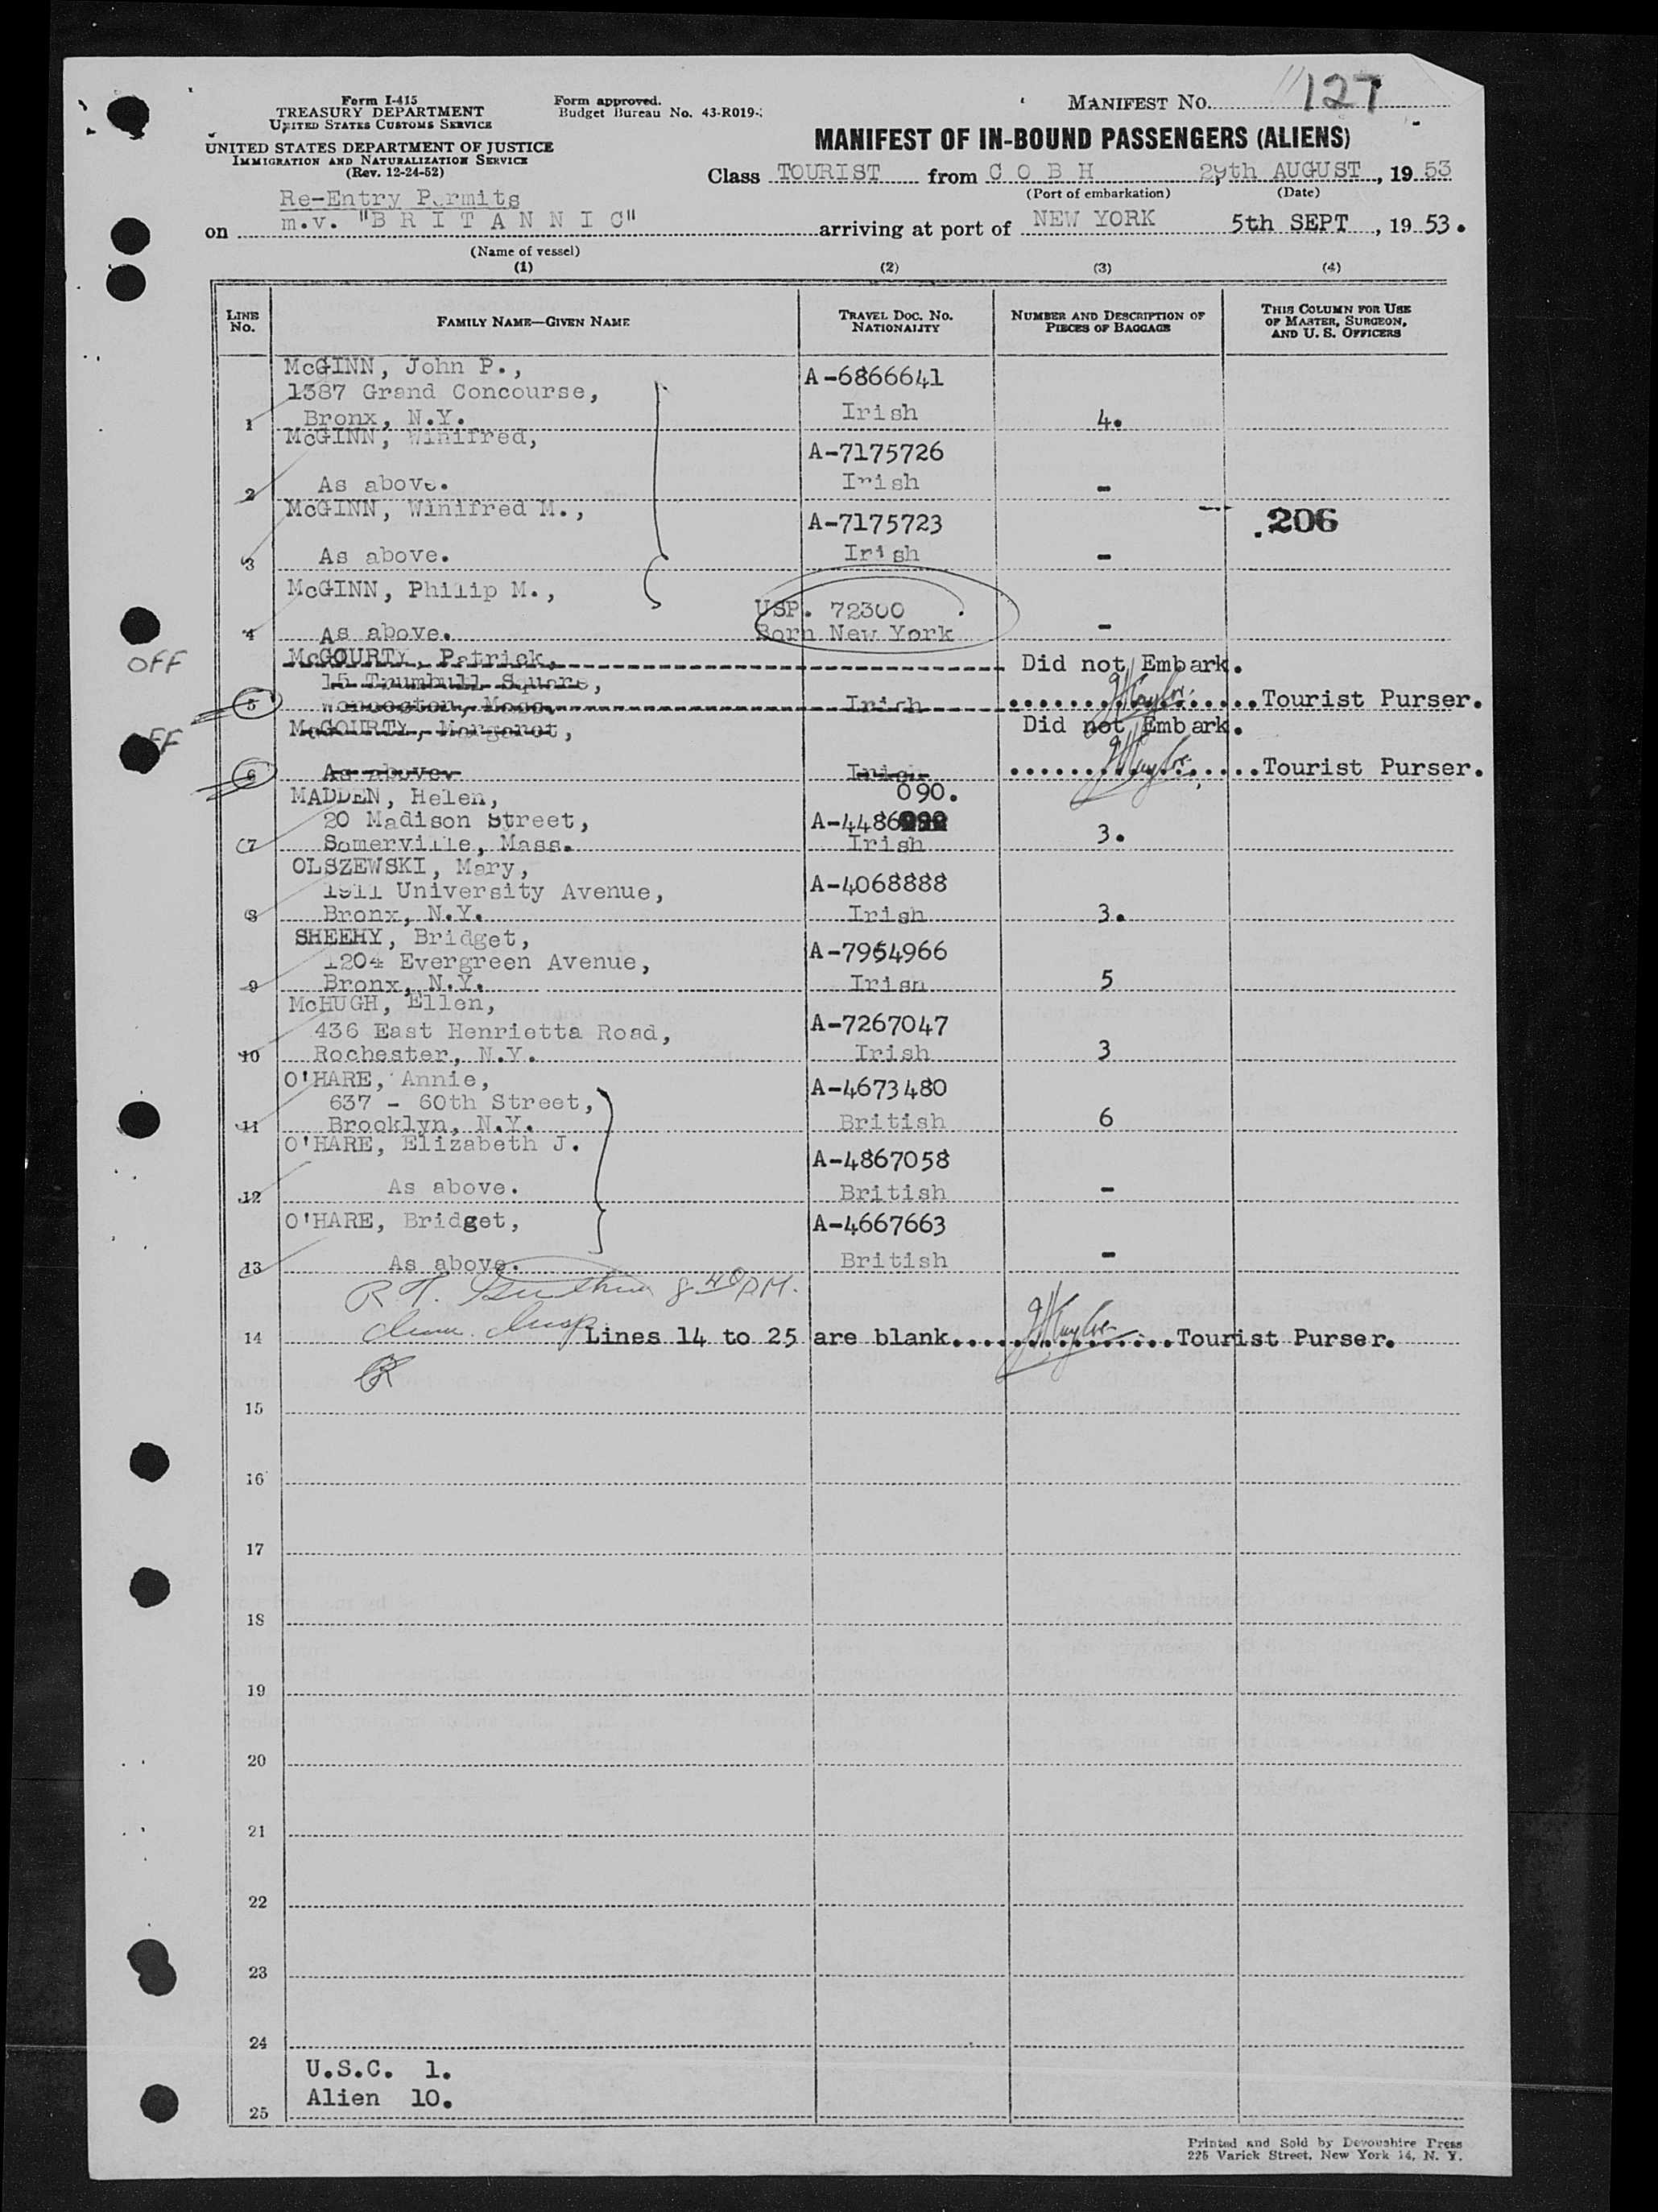 Form I-415
TREASURY DEPARTMENT
UNITED STATES CUSTOMS SERVICE
UNITED STATES DEPARTMENT OF JUSTICE
IMMIGRATION AND NATURALIZATION SERVICE
(Rev. 12-24-52)
Form approved.
Budget Bureau No. 43-R019-
MANIFEST NO. 127
MANIFEST OF IN-BOUND PASSENGERS (ALIENS)
Class TOURIST from C O B H 29th AUGUST, 19 53
(Port of embarkation) (Date)
Re-Entry Permits
on m.v. "B R I T A N N I C" arriving at port of NEW YORK 5th SEPT, 19 53.
(Name of vessel)
(1) (2) (3) (4)
LINE NO. FAMILY NAME—GIVEN NAME TRAVEL DOC. NO. NATIONALITY NUMBER AND DESCRIPTION OF PIECES OF BAGGAGE THIS COLUMN FOR USE OF MASTER, SURGEON, AND U. S. OFFICERS
McGINN, John P.,
1387 Grand Concourse, A-6866641
1 Bronx, N.Y. Irish 4.
McGINN, Winifred, A-7175726
2 As above. Irish -
McGINN, Winifred M., A-7175723 206
3 As above. Irish -
McGINN, Philip M., USP. 72300
4 As above. Born New York -
OFF McGOURTY, Patrick, Did not Embark.
15 Trumbull Square,
5 Worcester, Mass. Irish Tourist Purser.
OFF McGOURTY, Margaret, Did not Embark.
6 As above. Irish Tourist Purser.
MADDEN, Helen, 090.
20 Madison Street, A-4486
7 Somerville, Mass. Irish 3.
OLSZEWSKI, Mary,
1911 University Avenue, A-4068888
8 Bronx, N.Y. Irish 3.
SHEEHY, Bridget,
1204 Evergreen Avenue, A-7954966
9 Bronx, N.Y. Irish 5
McHUGH, Ellen,
436 East Henrietta Road, A-7267047
10 Rochester, N.Y. Irish 3
O'HARE, Annie, A-4673480
637 - 60th Street,
11 Brooklyn, N.Y. British 6
O'HARE, Elizabeth J. A-4867058
12 As above. British -
O'HARE, Bridget, A-4667663
13 As above. British -
8 40 P.M.
14 Lines 14 to 25 are blank. Tourist Purser.
15
16
17
18
19
20
21
22
23
24
U.S.C. 1.
Alien 10.
25
Printed and Sold by Devonshire Press
225 Varick Street, New York 14, N. Y.